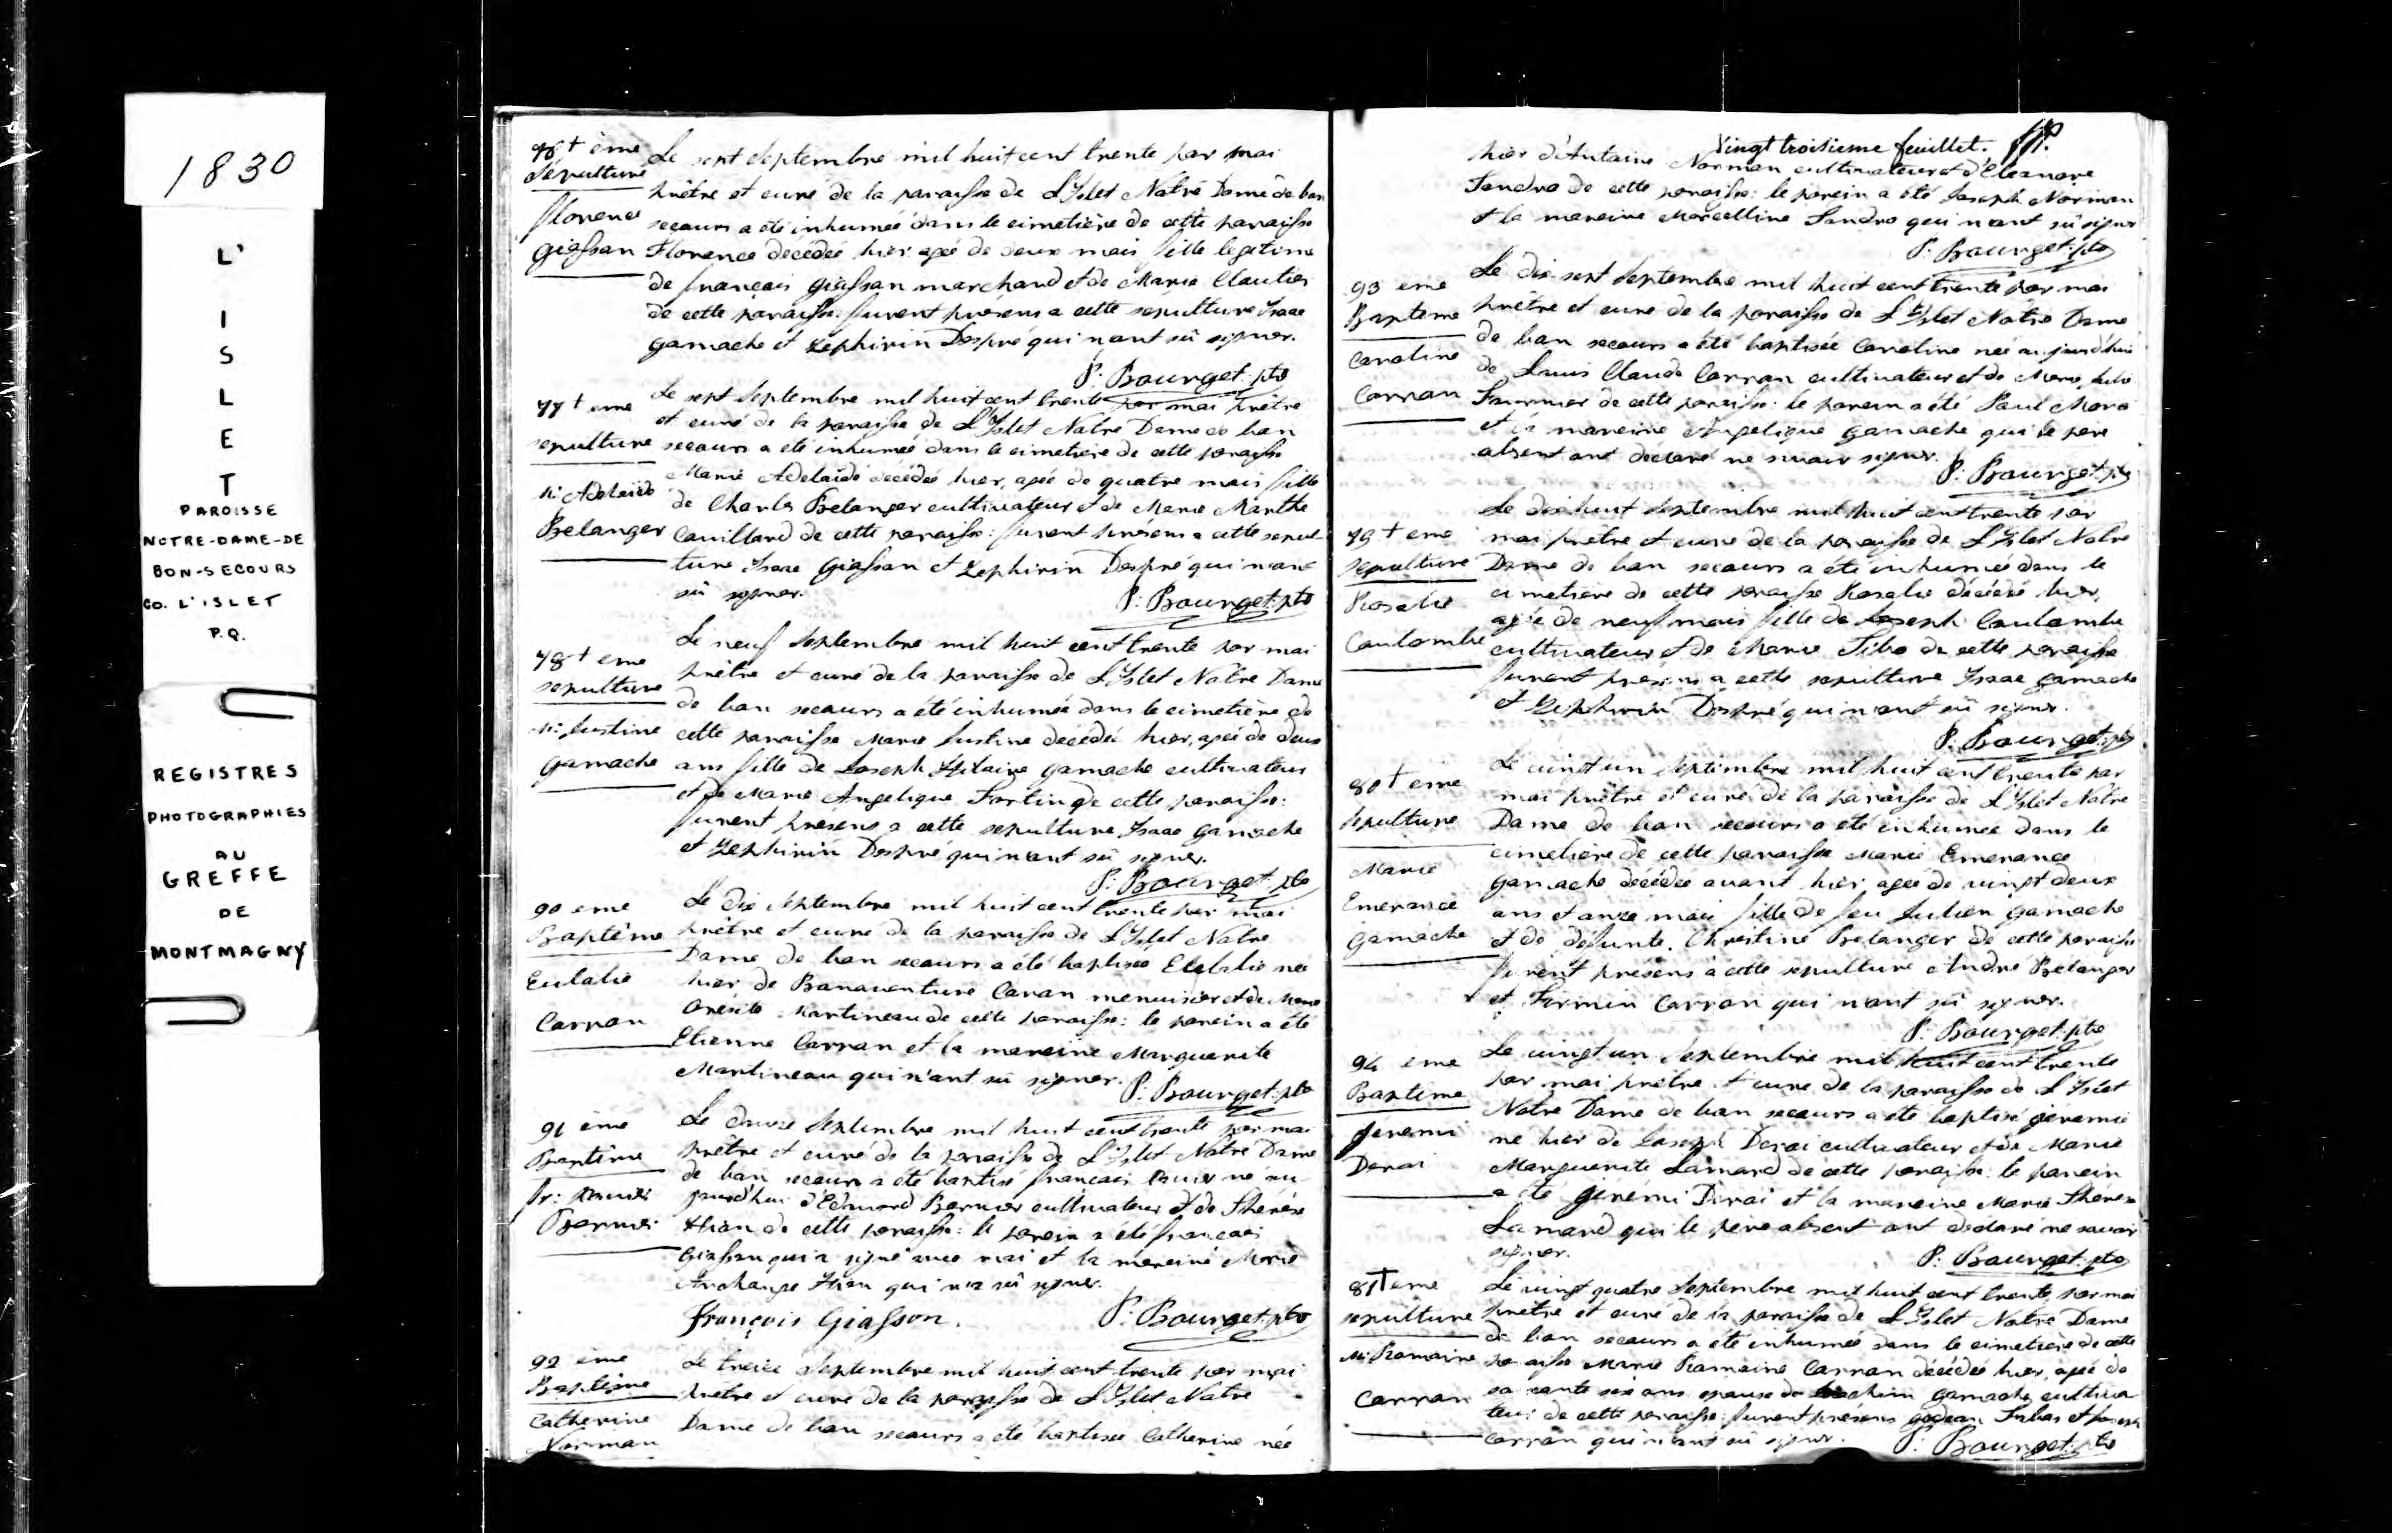 1830
L'
I
S
L
E
T
PAROISSE
NOTRE-DAME-DE
BON-SECOURS
CO. L'ISLET
P.Q.
REGISTRES
PHOTOGRAPHIES
AU
GREFFE
DE
MONTMAGNY
76+ ème
Sepulture
Florence
Giasson
Le sept Septembre mil huit cent trente par moi
prêtre et curé de la paroisse de L'Islet Notre Dame de bon
secours a été inhumée dans le cimetière de cette paroisse
Florence décédée hier agée de deux mois fille legitime
de françois Giasson marchand et de Marie Cloutier
de cette paroisse: furent présens a cette sepulture Isaac
gamache et Zephirin Despré qui n'ont sû signer.
P: Bourget ptre
77+ eme
sepulture
M: Adelaide
Belanger
Le sept Septembre mil huit cent trente par moi prêtre
et curé de la paroisse de L'Islet Notre Dame de bon
secours a été inhumée dans le cimetiere de cette paroisse
Marie Adelaide décédée hier, agée de quatre mois fille
de Charles Belanger cultivateur et de Marie Marthe
Couillard de cette paroisse: furent présens a cette sepul-
ture Isaac Giasson et Zephirin Despré qui n'ont
sû signer.
P: Bourget ptre
78+ eme
sepulture
M: Justine
gamache
Le neuf Septembre mil huit cent trente par moi
prêtre et curé de la paroisse de L'Islet Notre Dame
de bon secours a été inhumée dans le cimetière de
cette paroisse Marie Justine décédée hier, agée de deux
ans fille de Joseph Hilaire gamache cultivateur
et de Marie Angelique Fortin de cette paroisse:
furent presens a cette sepulture Isaac gamache
et Zephirin Despré qui n'ont sû signer.
P: Bourget ptre
90 eme
Baptême
Eulalie
Carron
Le dix Septembre mil huit cent trente par moi
prêtre et curé de la paroisse de L'Islet Notre
Dame de bon secours a été baptisée Eulalie née
hier de Bonaventure Caron menuisier et de Marie
Martineau de cette paroisse: le parein a été
Etienne Carron et la mareine Marguerite
Martineau qui n'ont sû signer.
P: Bourget ptre
91 ème
Baptême
fr: Xavier
Bernier
Le douze Septembre mil huit cent trente par moi
prêtre et curé de la paroisse de L'Islet Notre Dame
de bon secours a été baptisé françois Xavier né au-
jourd'hui d'Edouard Bernier cultivateur et de Thérèse
de cette paroisse: le parein a été françois
Giasson qui a signé avec moi et la mareine Marie
Archange qui n'a sû signer.
François Giasson.
P: Bourget ptre
92 ème
Baptême
Catherine
Norman
Le treize Septembre mil huit cent trente par moi
prêtre et curé de la paroisse de L'Islet Notre
Dame de bon secours a été baptisée Catherine née
Vingt troisieme feuillet.
hier d'Antoine Norman cultivateur et d'Eleanore
de cette paroisse: le parein a été Joseph Norman
et la mareine Marcelline qui n'ont sû signer
P: Bourget ptre
93 eme
Bapteme
Caroline
Carron
Le dix sept Septembre mil huit cent trente par moi
prêtre et curé de la paroisse de L'Islet Notre Dame
de bon secours a été baptisée Caroline née aujourd'hui
de Louis Claude Carron cultivateur et de Marie Julie
Fournier de cette paroisse: le parein a été Paul
et la mareine Angelique gamache qui le pere
absent ont declaré ne savoir signer.
P: Bourget ptre
79+ eme
sepulture
Rosalie
Coulombe
Le dix huit Septembre mil huit cent trente par
moi prêtre et curé de la paroisse de L'Islet Notre
Dame de bon secours a été inhumée dans le
cimetiere de cette paroisse Rosalie décédée hier,
agée de neuf mois fille de Joseph Coulombe
cultivateur et de Marie de cette paroisse
furent presens a cette sepulture Isaac gamache
et Zephirin Despré qui n'ont sû signer.
P: Bourget ptre
80+ eme
sepulture
Marie
Emerance
gamache
Le vingt un Septembre mil huit cent trente par
moi prêtre et curé de la paroisse de L'Islet Notre
Dame de bon secours a été inhumée dans le
cimetiere de cette paroisse Marie Emerance
gamache décédée avant hier, agée de vingt deux
ans et onze mois fille de feu Julien gamache
et de défunte Christine Belanger de cette paroisse
furent présens à cette sepulture André Belanger
et Firmin Carron qui n'ont sû signer.
P: Bourget ptre
94 eme
Bapteme
Jeremi
Derai
Le vingt un Septembre mil huit cent trente
par moi prêtre et curé de la paroisse de L'Islet
Notre Dame de bon secours a été baptisé geremi
né hier de Joseph Derai cultivateur et de Marie
Marguerite Lamard de cette paroisse: le parein
a été geremi Derai et la mareine Marie Thérèse
Lamard qui le pere absent ont declaré ne savoir
signer.
P: Bourget ptre
81+ eme
sepulture
M: Romaine
Carron
Le vingt quatre Septembre mil huit cent trente, par moi
prêtre et curé de la paroisse de L'Islet Notre Dame
de bon secours a été inhumée dans le cimetiere de cette
paroisse Marie Romaine Carron décédée hier, agée de
soixante six ans epouse de gamache cultiva
teur de cette paroisse: furent présens et
Carron qui n'ont sû signer.
P: Bourget ptre